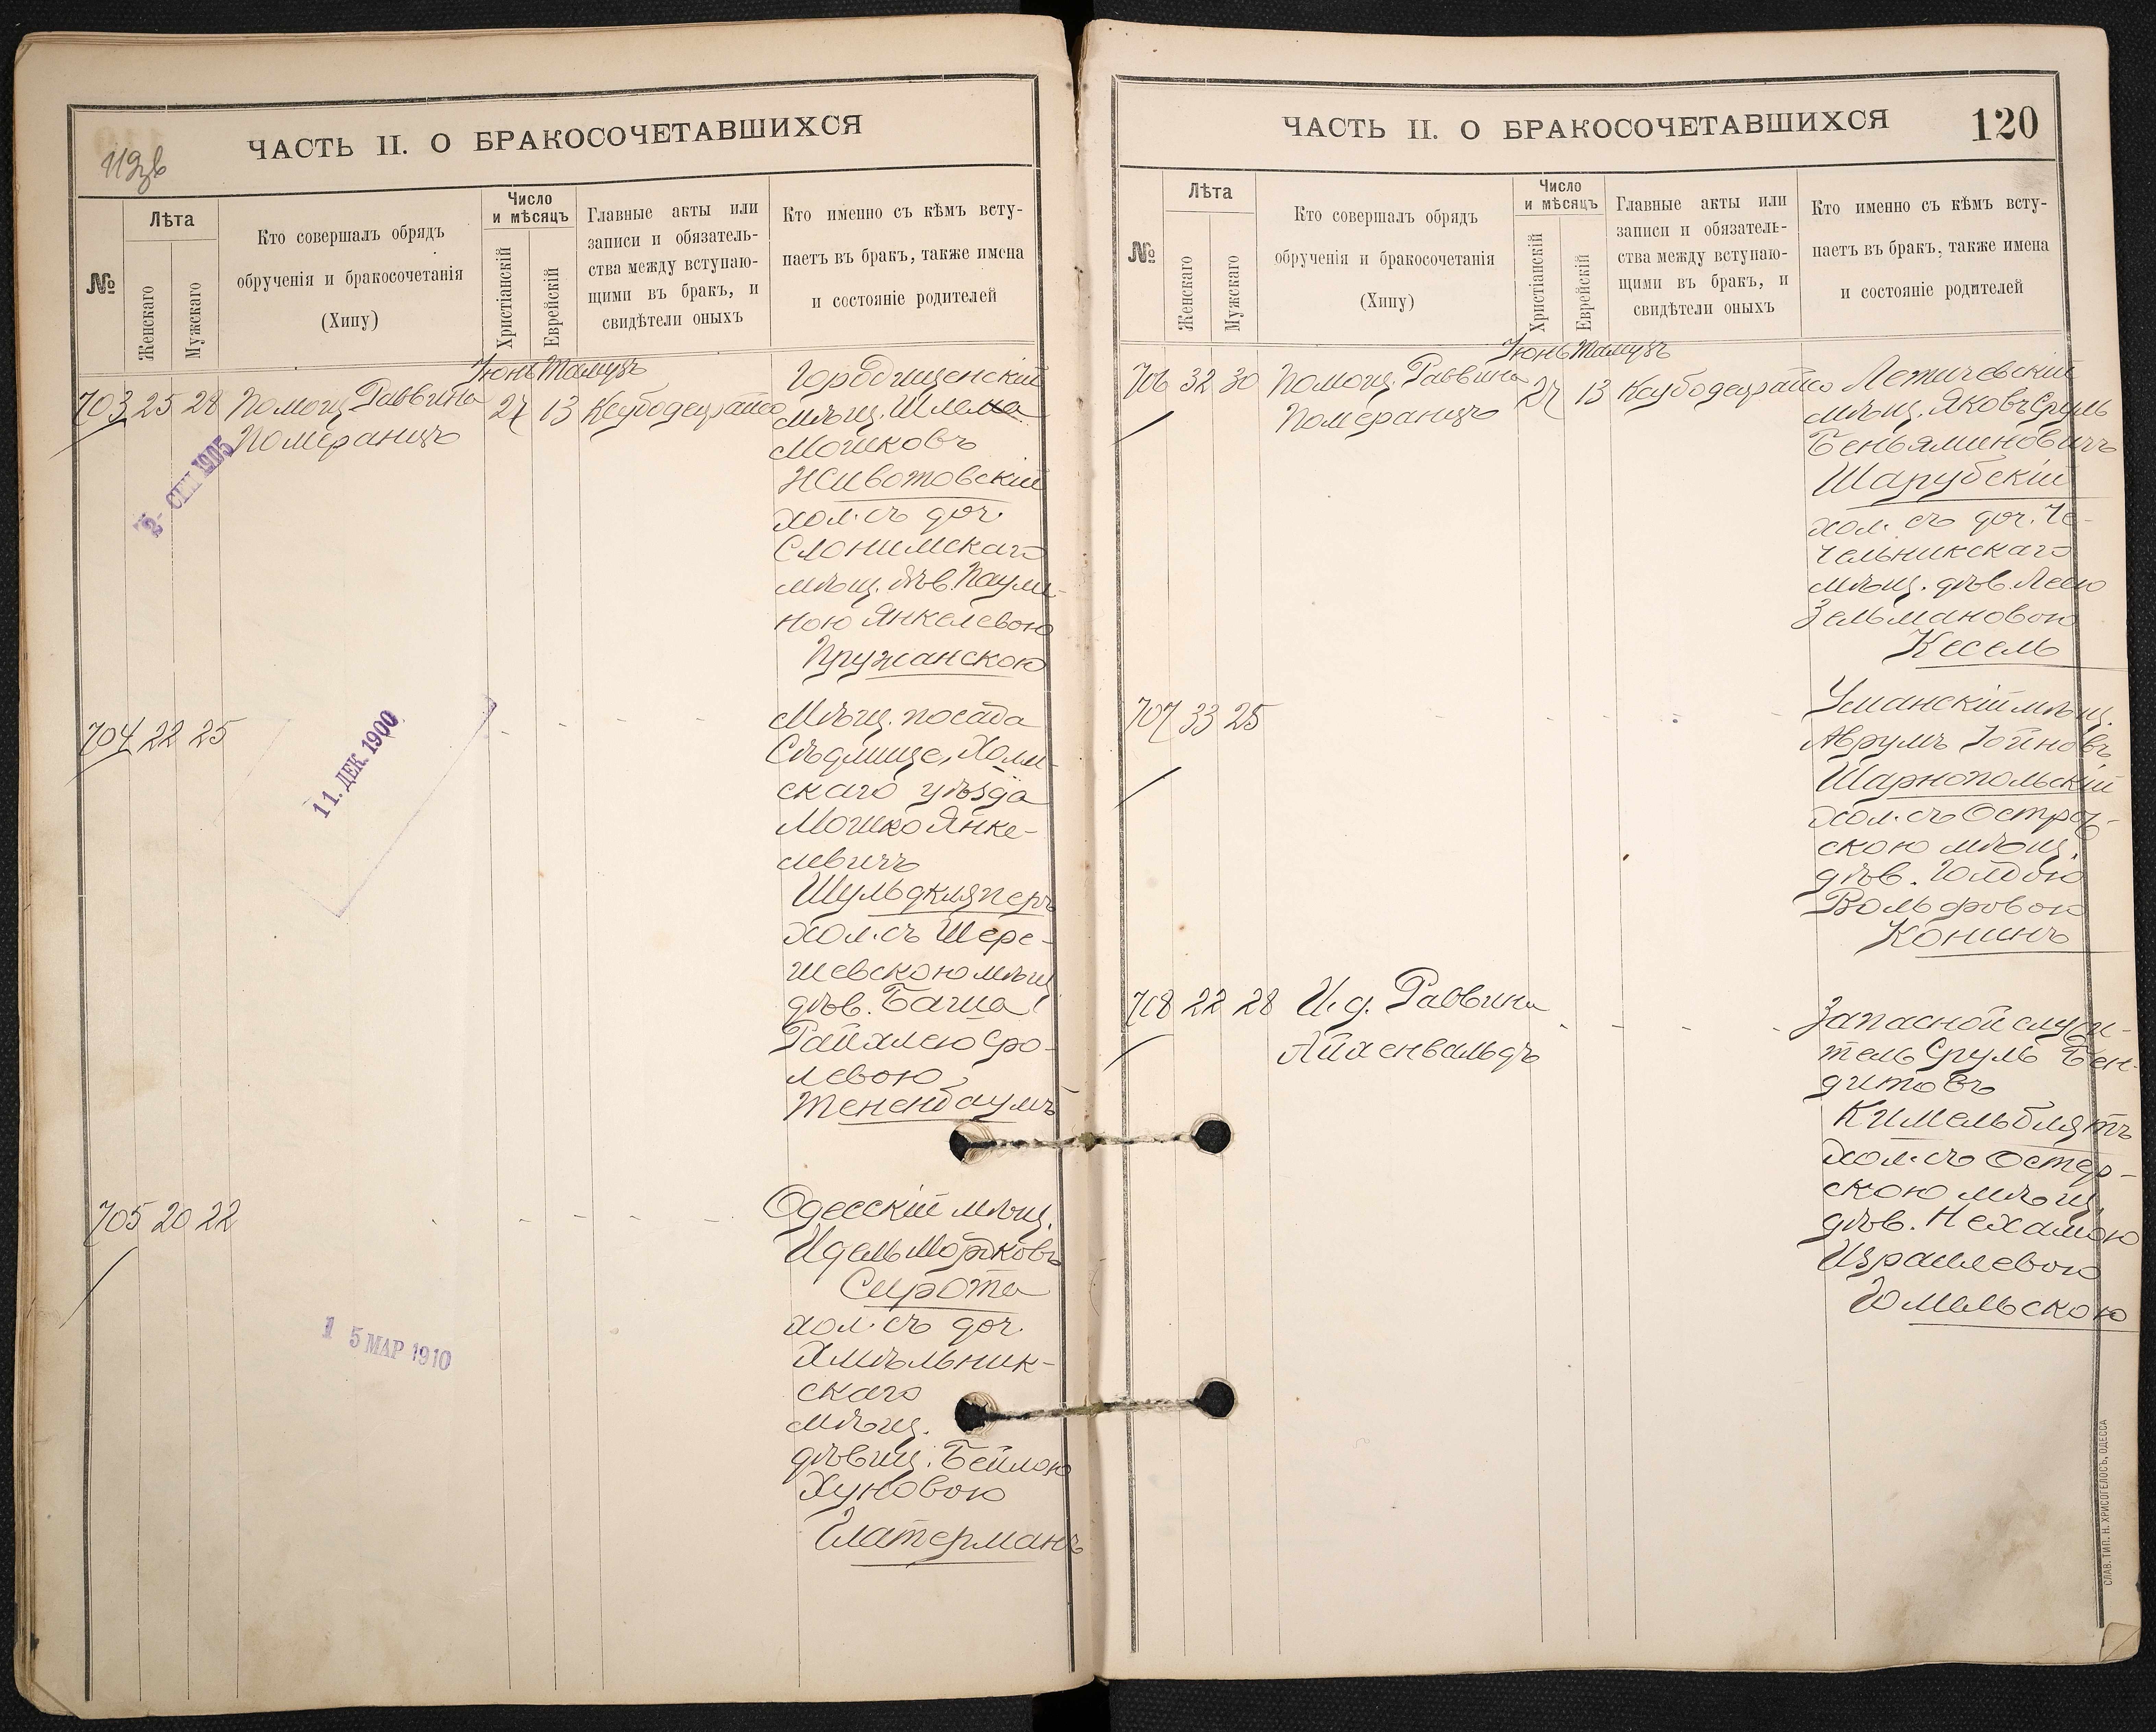 ЧАСТЬ II. О БРАКОСОЧЕТАВШИХСЯ
№
Лѣта
Женскаго
Мужскаго
Кто совершалъ обрядъ
обрученія и бракосочетанія
(Хипу)
Число
и мѣсяцъ
Христіанскій
Еврейскій
Главные акты или
записи и обязатель-
ства между вступаю-
щими въ бракъ, и
свидѣтели оныхъ
Кто именно съ кѣмъ всту-
паетъ въ бракъ, также имена
и состояніе родителей
Іюнь Тамузъ
703 25 28 Помощ. Раввина 27 13
Померанцъ
2- СЕН 1905
Городищенскій
мѣщ. Шлема
Мошковъ
Животовскій
хол. съ доч.
Слонимскаго
мѣщ. дѣв. Паули-
ною Янкелевою
Пружанскою
704 22 25
11. ДЕК. 1900
Мѣщ. посада
Сѣдлище, Холм-
скаго уѣзда
Мошко Янке-
левичъ
Шульдкляперъ
хол. съ Шере-
шевскою мѣщ.
дѣв. Башa
Райхлею Сро-
левою
Тененбаумъ
705 20 22
1 5 МАР 1910
Одесскій мѣщ.
Идель Мордковъ
Сирота
хол. съ доч.
Хмѣльник-
скаго
мѣщ.
дѣвиц. Бейлою
Хуновою
Глатерманъ
ЧАСТЬ II. О БРАКОСОЧЕТАВШИХСЯ
120
№
Лѣта
Женскаго
Мужскаго
Кто совершалъ обрядъ
обрученія и бракосочетанія
(Хипу)
Число
и мѣсяцъ
Христіанскій
Еврейскій
Главные акты или
записи и обязатель-
ства между вступаю-
щими въ бракъ, и
свидѣтели оныхъ
Кто именно съ кѣмъ всту-
паетъ въ бракъ, также имена
и состояніе родителей
Іюнь Тамузъ
706 32 30 Помощ. Раввина 27 13
Померанцъ
Летичевскій
мѣщ. Яковъ Сруль
Беньяминовичъ
Шарубскій
хол. съ доч. Че-
чельникскаго
мѣщ. дѣв. Леею
Зельмановою
Кесель
707 33 25
Уманскій мѣщ.
Аврумъ Іойновъ
Шарнопольскій
хол. съ Острог-
скою мѣщ.
дѣв. Голдою
Вольфовою
Конинъ
708 22 28 И. д. Раввина
Айхенвальдъ
Запасной служи-
тель Сруль Бен-
дитовъ
Кимельблятъ
хол. съ Остер-
скою мѣщ.
дѣв. Нехамою
Израилевою
Гомельскою
СЛАВ. ТИП. Н. ХРИСОГЕЛОСЪ, ОДЕССА